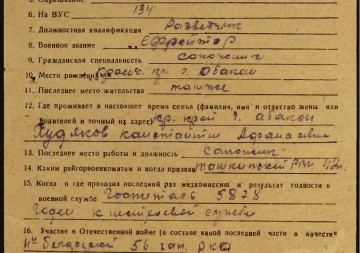 6. На ВУС 134
7. Должностная квалификация Разведчик
8. Военное звание Ефрейтор
9. Гражданская специальность сапожник
10. Место рождения Красн. кр. г. Абакан
11. Последнее место жительства также
12. Где проживает в настоящее время семья (фамилия, имя и отчество жены или
родителей и точный их адрес) кр. край г. Абакан
Худяков
13. Последнее место работы и должность Сапожник
14. Каким райгорвоенкоматом и когда призван
15. Когда и где проходил последний раз медкомиссию и результат годности к
военной службе Госпиталь 5878
Годен к строевой службе
16. Участие в Отечественной войне (в составе какой последней части и в качестве
56